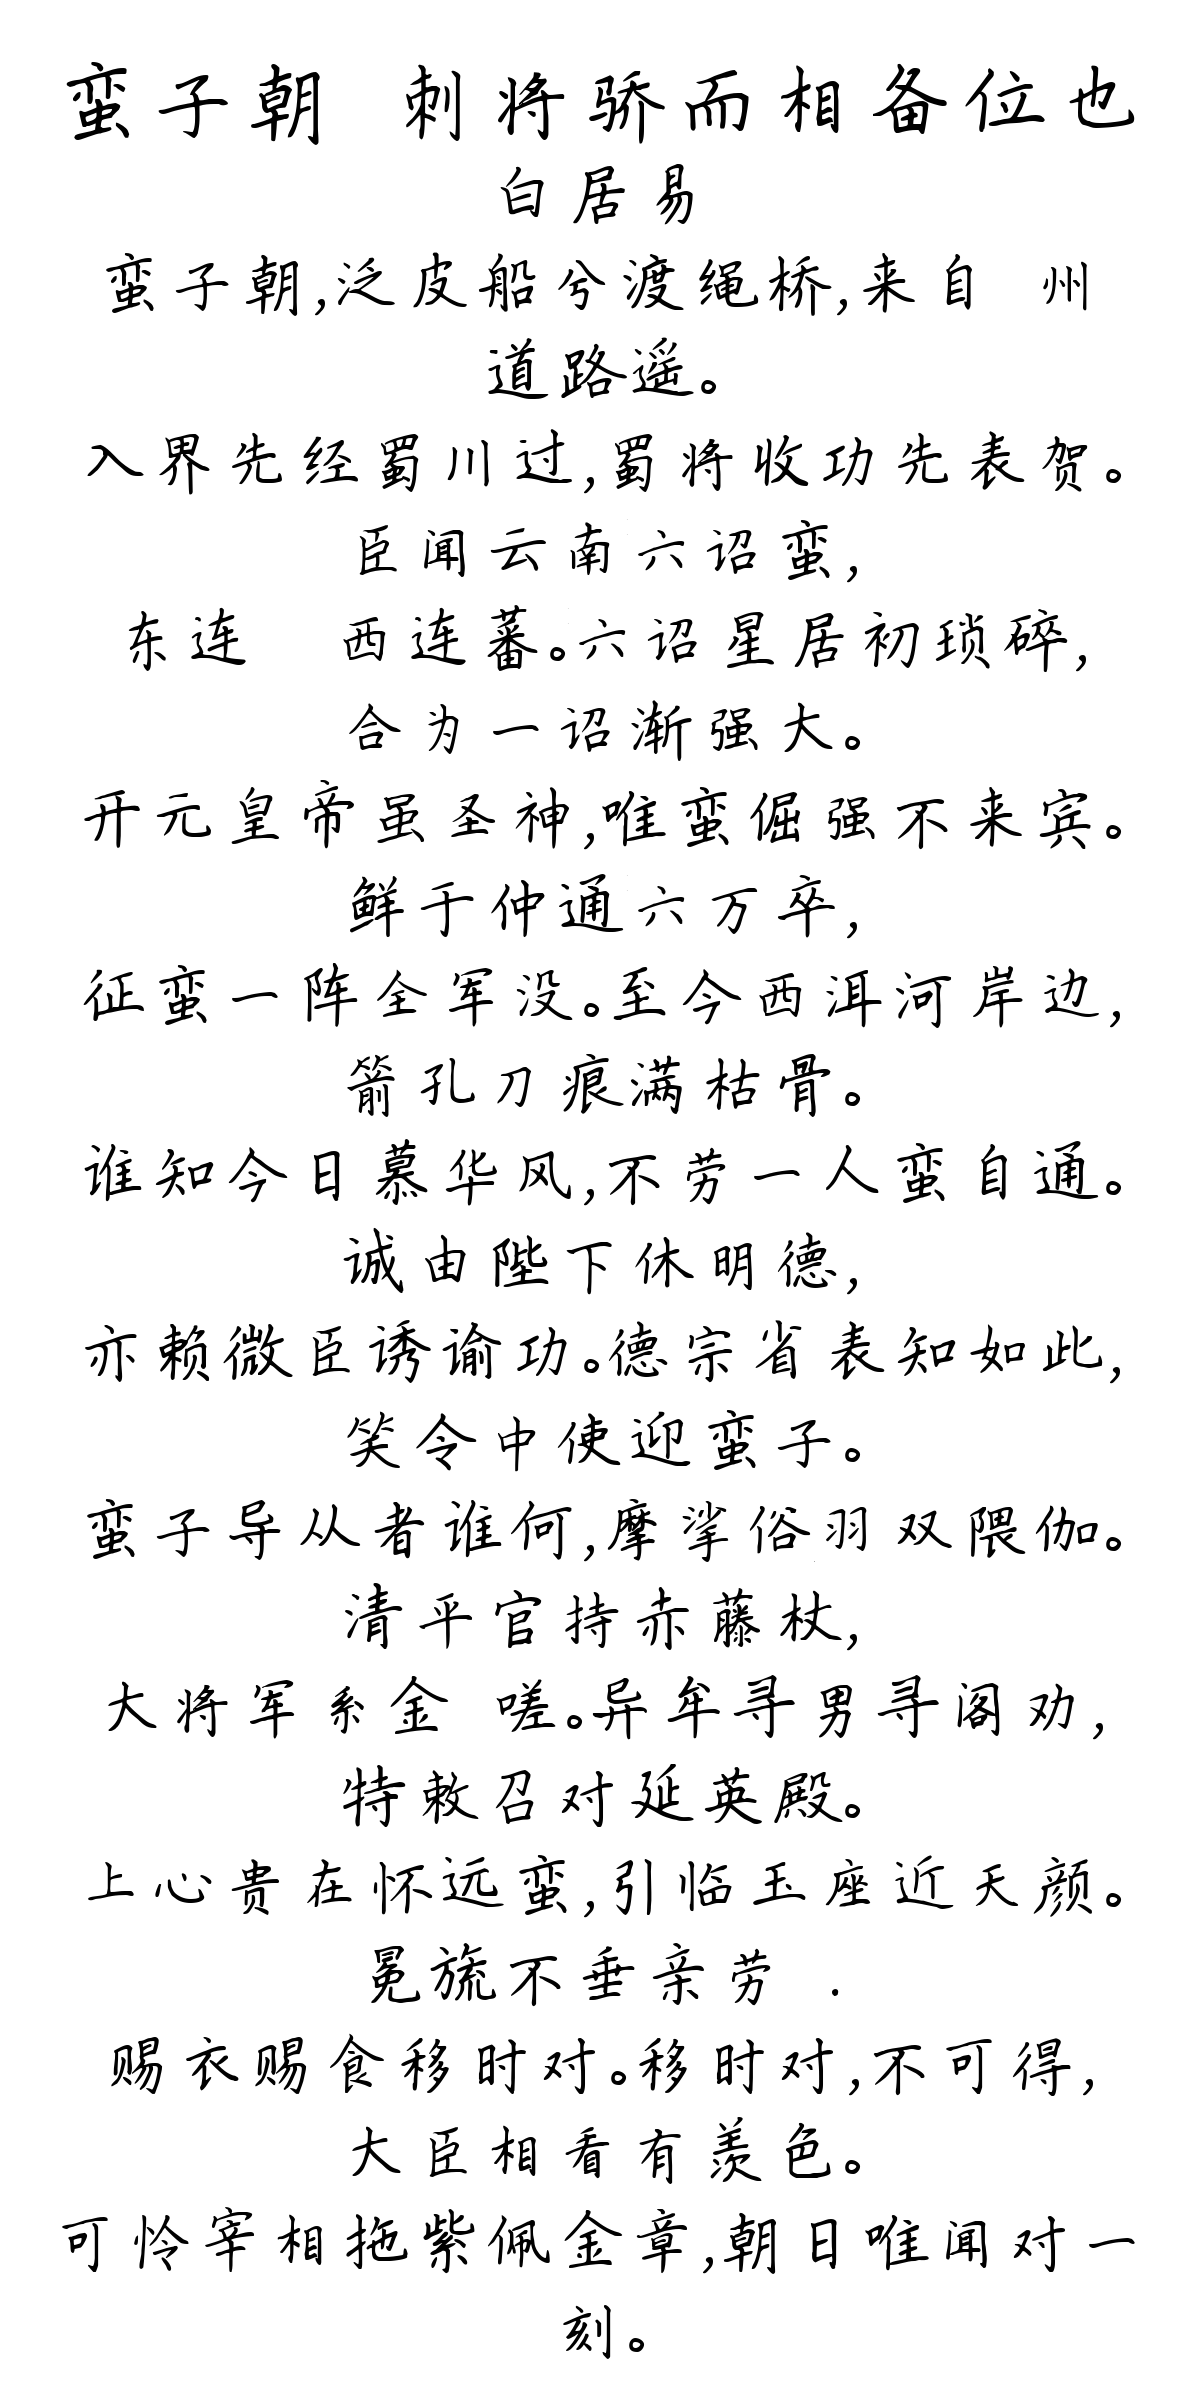 蛮子朝 刺将骄而相备位也
白居易
蛮子朝,泛皮船兮渡绳桥,来自 州
道路遥。
入界先经蜀川过,蜀将收功先表贺。
臣闻云南六诏蛮,
东连 西连蕃。六诏星居初琐碎,
合为一诏渐强大。
开元皇帝虽圣神,唯蛮倔强不来宾。
鲜于仲通六万卒,
征蛮一阵全军没。至今西洱河岸边,
箭孔刀痕满枯骨。
谁知今日慕华风,不劳一人蛮自通。
诚由陛下休明德,
亦赖微臣诱谕功。德宗省表知如此,
笑令中使迎蛮子。
蛮子导从者谁何,摩挲俗羽双隈伽。
清平官持赤藤杖,
大将军系金 嗟。异牟寻男寻阁劝,
特敕召对延英殿。
上心贵在怀远蛮,引临玉座近天颜。
冕旒不垂亲劳 .
赐衣赐食移时对。移时对,不可得,
大臣相看有羡色。
可怜宰相拖紫佩金章,朝日唯闻对一
刻。